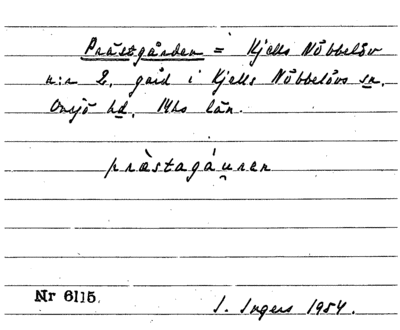 Prästgården = Kjells Nöbbelöv
n:r 2, gård i Kjells Nöbbelövs sn,
Onsjö hd, Mhs län.
prästagáu̯ren
Nr 6115.
I. Ingers 1954.